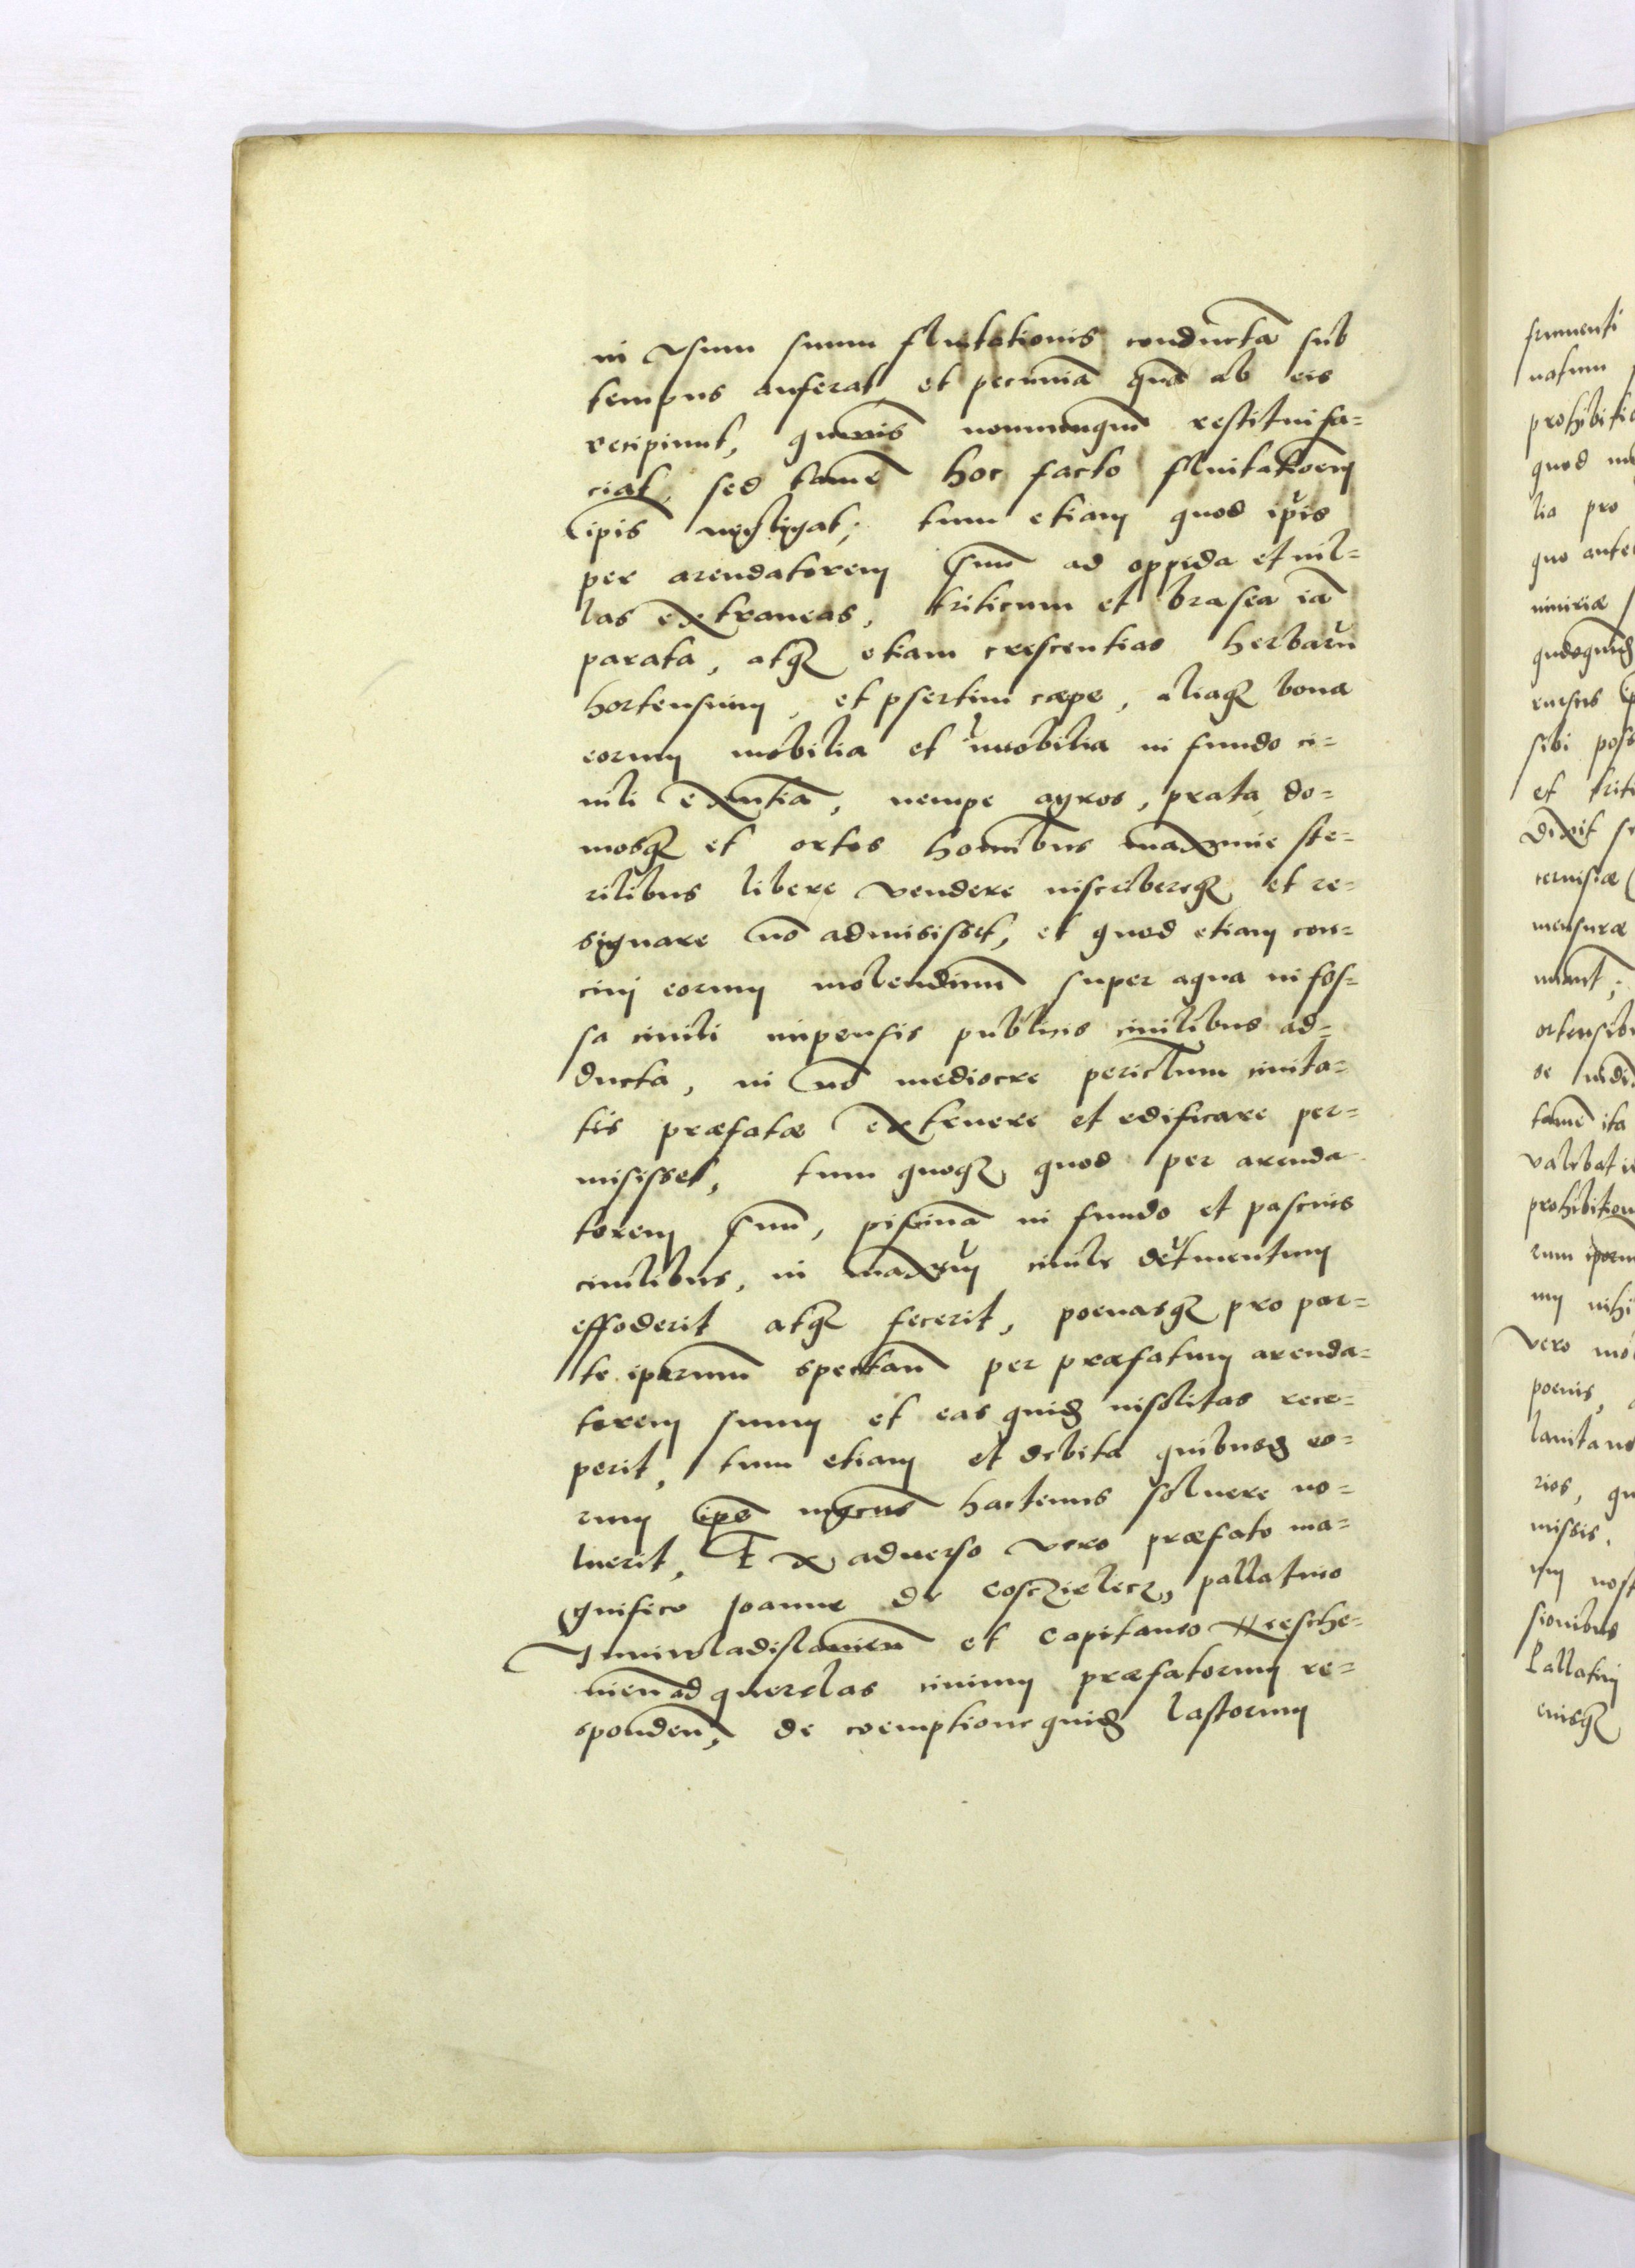 in vsum suum fluitationis conducta sub
tempus auferat, et pecuniā quā ab eis
recipiunt, quāuis nonnunquā restitui fa=
ciat, sed tamē hoc facto fluitationem
ipīs negligat; tum etiam quod ipīs
per arendatorem suū ad oppida et vil=
las extraneas, triticum et brasea iā
parata, atq₃ etiam crescentias herbarū
hortensium, et p̄sertim cæpe, aliaq₃ bona
eorum mobilia et īmobilia in fundo ci=
uili exn̄tia, nempe agros, prata do=
mosq₃ et ortos hoībus maxime ste=
rilibus libere vendere inscribereq₃ et re=
signare nō admisisset, et quod etiam con=
ciui eorum molendinū super aqua in fos=
sa ciuili impensis publicis ciuilibus ad=
ducta, in nō mediocre pericl̄um ciuita=
tis præfatæ extruere et edificare per=
misisset, tum quoq₃ quod per arenda=
torem suū, piscinā in fundo et pascuis
ciuilibus, in maxm̄ ciuile detrimentum
effoderit atq₃ fecerit, poenasq₃ pro par=
te ipōrum spectan̄ per præfatum arenda=
torem suum et eas quid₃ insolitas rece=
perit, tum etiam et debita quibusd₃ eo=
rum ipē mgcūs hactenus soluere no=
luerit, Ex aduerso vero præfato ma=
gnifico Joanne de Cosczielecz, pallatino
Iuniwladislauien̄ et Capitaneo
uien̄ ad querelas ciuium præfatorum re=
sponden̄, de coemptione quid₃ lastorum
frumenti
natum
prohibitio
quod
lia pro
quo ante
rursus
sibi
et
dixit
ceruisiæ
mensuræ
tamē ita
valebat
prohibition
vero
poenis,
rios,
missis,
sionibus
Pallatin